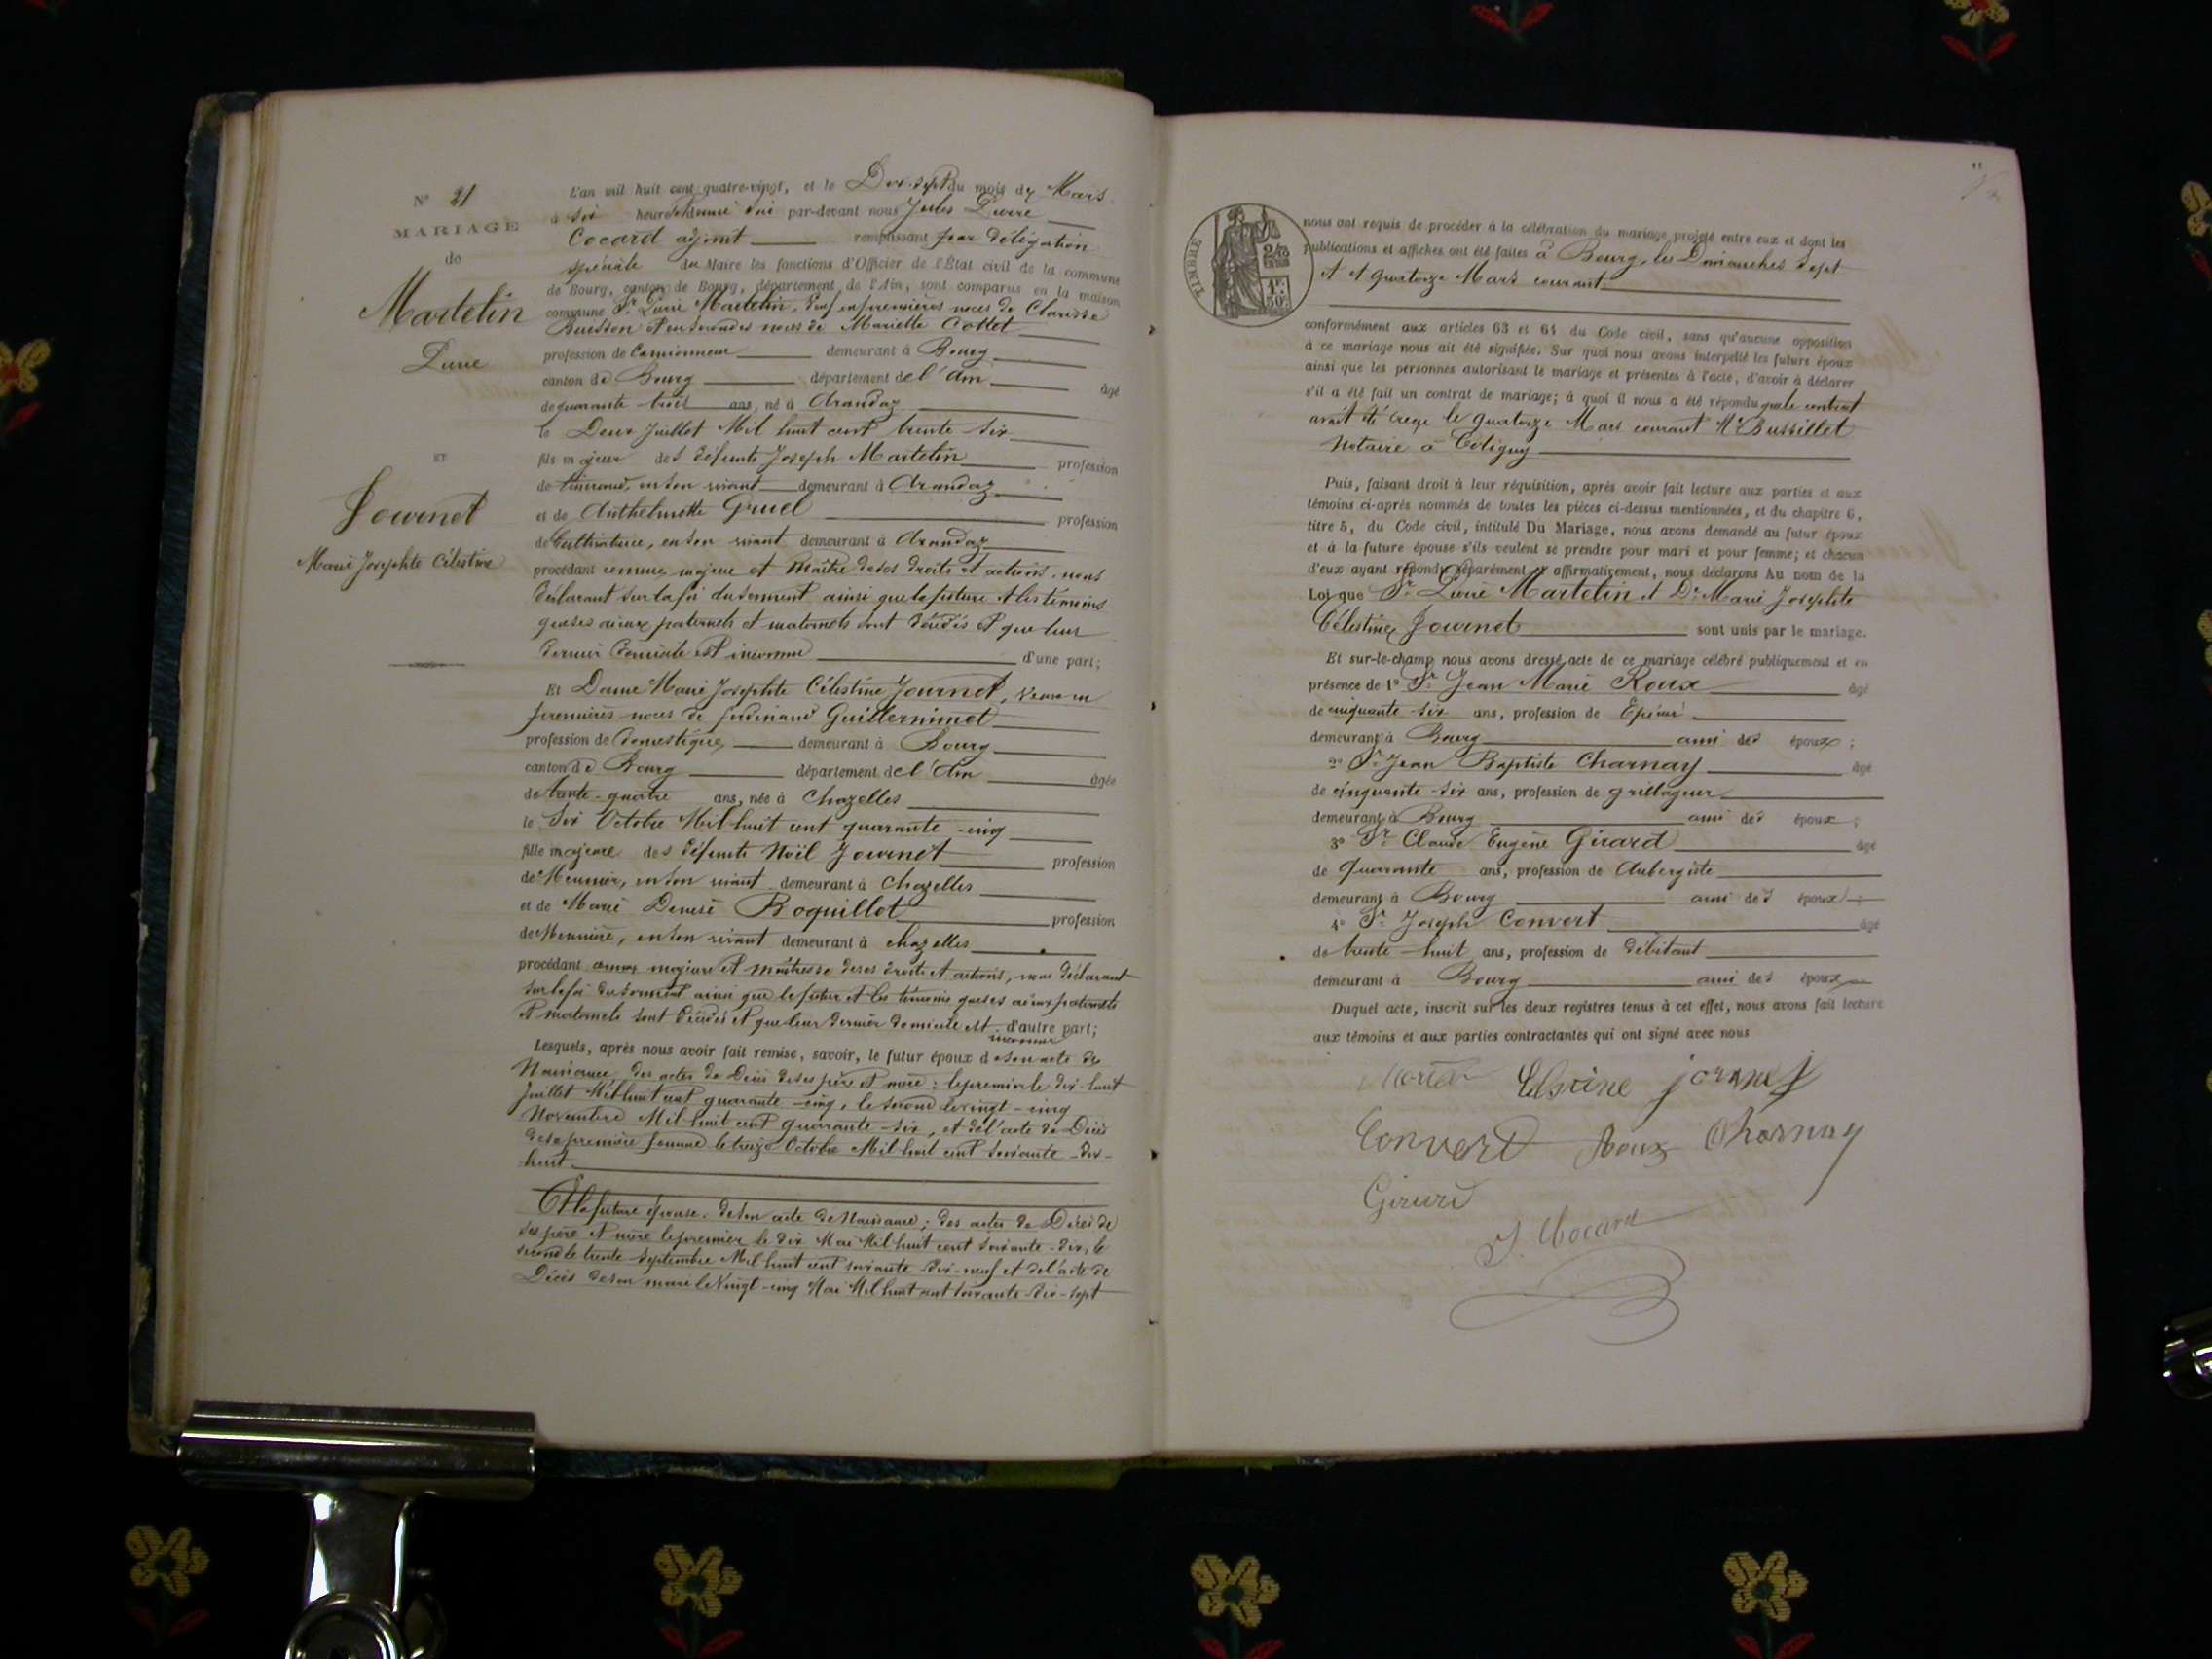 N° 21
MARIAGE
de
Martelin
Pierre
ET
Journet
Marie Josephte Célestine
L'an mil huit cent quatre-vingt, et le Dix-sept du mois de Mars
à six heures et demie soir par-devant nous Jules Pierre
Cocard adjoint remplissant par délégation
spéciale du Maire les fonctions d'Officier de l'État civil de la commune
de Bourg, canton de Bourg, département de l'Ain, sont comparus en la maison
commune Sr Pierre Martelin, veuf en premières noces de Clarisse
Buisson et en secondes noces de Mariette Cottet
profession de Camionneur demeurant à Bourg
canton de Bourg département de l'Ain âgé
de quarante-trois ans, né à Arandaz
le Deux Juillet Mil huit cent trente six
fils majeur des défunts Joseph Martelin profession
de tisserand, en son vivant demeurant à Arandaz
et de Anthelmette Gruel profession
de Cultivatrice, en son vivant demeurant à Arandaz
procédant comme majeur et Maître de ses droits et actions, nous
déclarant sur la foi du serment ainsi que la future et les témoins
que ses aïeux paternels et maternels sont décédés et que leur
dernier domicile est inconnu d'une part;
Et Dame Marie Josephte Célestine Journet, veuve en
premières noces de ferdinand Guillerminet
profession de domestique demeurant à Bourg
canton de Bourg département de l'Ain âgée
de trente-quatre ans, née à Chazelles
le Six Octobre Mil huit cent quarante-cinq
fille majeure des défunts Noël Journet profession
de Meunier, en son vivant demeurant à Chazelles
et de Marie Denise Boquillot profession
de Meunière, en son vivant demeurant à chazelles
procédant comme majeure et maîtresse de ses droits et actions, nous déclarant
sur la foi du serment ainsi que le futur et les témoins que ses aïeux paternels
et maternels sont décédés et que leur dernier domicile est inconnu d'autre part;
Lesquels, après nous avoir fait remise, savoir, le futur époux de son acte de
Naissance des actes de Décès de ses père et mère : le premier le dix-huit
Juillet Mil huit cent quarante-cinq, le second le vingt-cinq
Novembre Mil huit cent quarante-six, et de l'acte de Décès
de sa première femme le treize Octobre Mil huit cent soixante-dix-
huit
Et la future épouse, de son acte de Naissance ; des actes de Décès de
ses père et mère le premier le dix Mai Mil huit cent soixante-dix, le
second le trente Septembre Mil huit cent soixante-dix-neuf et de l'acte de
Décès de son mari le Vingt-cinq Mai Mil huit cent soixante-dix-sept
TIMBRE
2/10
1F.
50C.
nous ont requis de procéder à la célébration du mariage projeté entre eux et dont les
publications et affiches ont été faites à Bourg, les Dimanches Sept
et Quatorze Mars courant
conformément aux articles 63 et 64 du Code civil, sans qu'aucune opposition
à ce mariage nous ait été signifiée. Sur quoi nous avons interpellé les futurs époux
ainsi que les personnes autorisant le mariage et présentes à l'acte, d'avoir à déclarer
s'il a été fait un contrat de mariage; à quoi il nous a été répondu que le contrat
avait été reçu le quatorze Mars courant Me Bussillet
Notaire à Coligny
Puis, faisant droit à leur réquisition, après avoir fait lecture aux parties et aux
témoins ci-après nommés de toutes les pièces ci-dessus mentionnées, et du chapitre 6,
titre 5, du Code civil, intitulé Du Mariage, nous avons demandé au futur époux
et à la future épouse s'ils veulent se prendre pour mari et pour femme; et chacun
d'eux ayant répondu séparément et affirmativement, nous déclarons Au nom de la
Loi que Sr Pierre Martelin et De Marie Josephte
Célestine Journet sont unis par le mariage.
Et sur-le-champ nous avons dressé acte de ce mariage célébré publiquement et en
présence de 1° Sr Jean Marie Roux âgé
de cinquante six ans, profession de Épicier
demeurant à Bourg ami des époux ;
2° Sr Jean Baptiste Charnay âgé
de cinquante-six ans, profession de grillageur
demeurant à Bourg ami des époux ;
3° Sr Claude Eugène Girard âgé
de Quarante ans, profession de Aubergiste
demeurant à Bourg ami des époux ;
4° Sr Joseph Convert âgé
de trente-huit ans, profession de débitant
demeurant à Bourg ami des époux
Duquel acte, inscrit sur les deux registres tenus à cet effet, nous avons fait lecture
aux témoins et aux parties contractantes qui ont signé avec nous
Convert Roux Charnay
Girard
J. Cocard